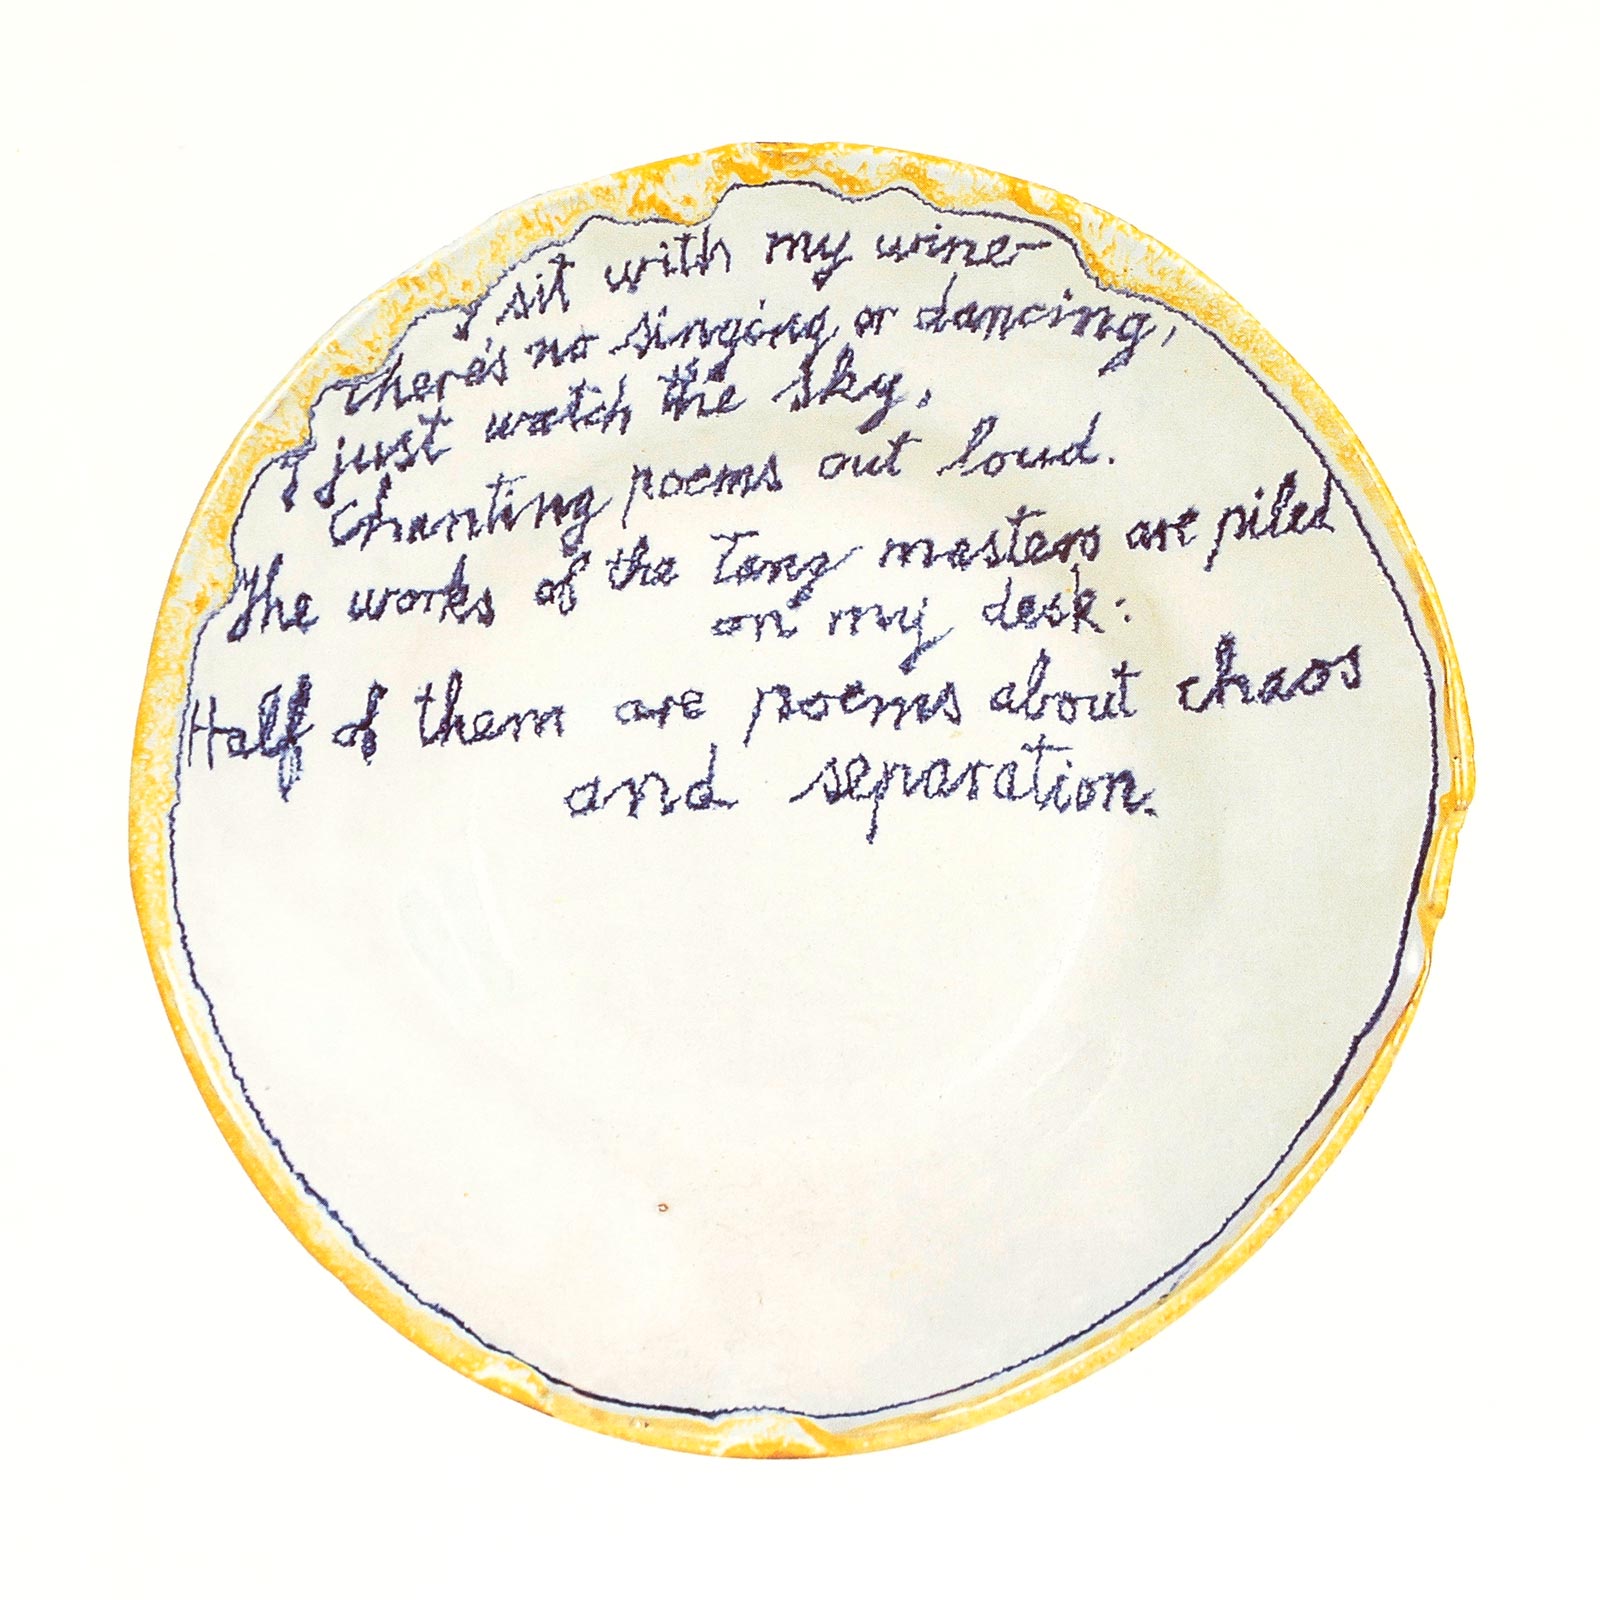 I sit with my wine—
there's no singing or dancing,
I just watch the sky,
Chanting poems out loud.
The works of the Tang masters are piled
on my desk:
Half of them are poems about chaos
and separation.